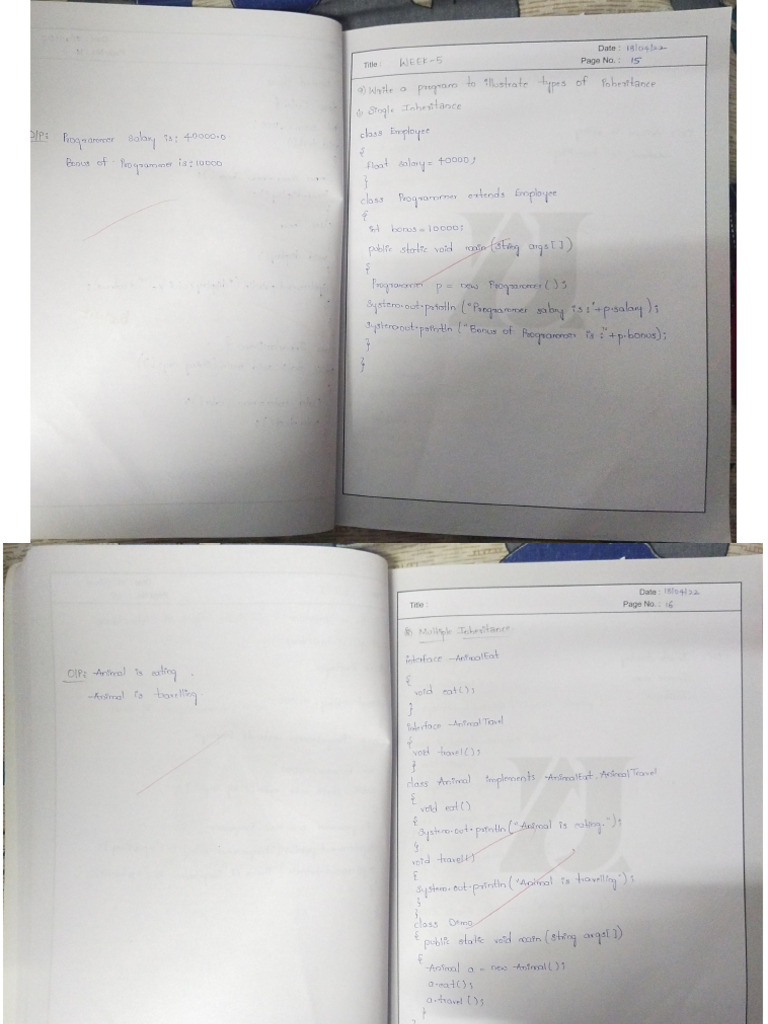 O/P: Programmer salary is: 40000.0
Bonus of Programmer is: 10000
Title : WEEK-5
Date : 18/04/22
Page No. : 15
a) Write a program to illustrate types of inheritance
i) Single Inheritance
class Employee
{
float salary = 40000;
}
class Programmer extends Employee
{
int bonus = 10000;
public static void main(string args[])
{
Programmer p = new Programmer();
System.out.println("Programmer salary is :"+p.salary);
System.out.println("Bonus of Programmer is :"+p.bonus);
}
}
O/P: Animal is eating.
Animal is travelling.
Title :
Date : 18/04/22
Page No. : 16
Multiple Inheritance.
interface AnimalEat
{
void eat();
}
interface AnimalTravel
{
void travel();
}
class Animal implements AnimalEat, AnimalTravel
{
void eat()
{
System.out.println("Animal is eating.");
}
void travel()
{
System.out.println("Animal is travelling");
}
}
class Demo
{
public static void main(string args[])
{
Animal a = new Animal();
a.eat();
a.travel();
}
}